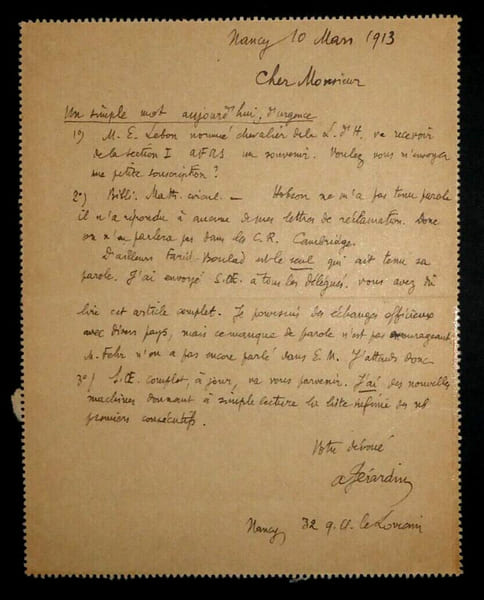 Nancy 10 Mars 1913
Cher Monsieur
Un simple mot aujourd'hui, d'urgence
1º) M. E. Lebon nommé chevalier de la L. d'H. va recevoir
de la section I AFAS un souvenir. Voulez vous m'envoyer
une petite souscription ?
2º) Bibli. Math. circul. — Hobson ne m'a pas tenu parole
il n'a répondu à aucune de mes lettres de réclamation. Donc
on n'en parlera pas dans les C.R. Cambridge.
D'ailleurs Farid Boulad est le seul qui ait tenu sa
parole. J'ai envoyé S.Œ. à tous les délégués. vous avez dû
lire cet article complet. Je poursuis des échanges officieux
avec divers pays, mais ce manque de parole n'est pas encourageant
M. Fehr n'en a pas encore parlé dans E.M. J'attends donc.
3º) S.Œ. complet, à jour, va vous parvenir. J'ai des nouvelles
machines donnant à simple lecture la liste infinie des nb
premiers consécutifs.
Votre dévoué
A Gérardin
Nancy 32 q. Cl. le Lorrain